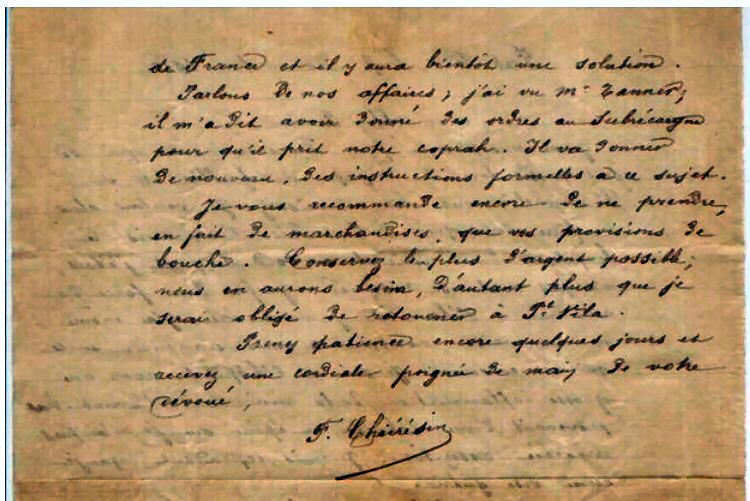 de France et il y aura bientôt une solution.
Parlons de nos affaires; j'ai vu Mr Zanner;
il m'a dit avoir donné des ordres au Subrécargue
pour qu'il prit notre coprah. Il va donner
de nouveau, des instructions formelles à ce sujet.
Je vous recommande encore de ne prendre,
en fait de marchandises, que vos provisions de
bouche. Conservez le plus d'argent possible;
nous en aurons besoin, d'autant plus que je
serai obligé de retourner à Pt Vila.
Prenez patience encore quelques jours et
recevez une cordiale poignée de main de votre
dévoué,
F. Chérésin